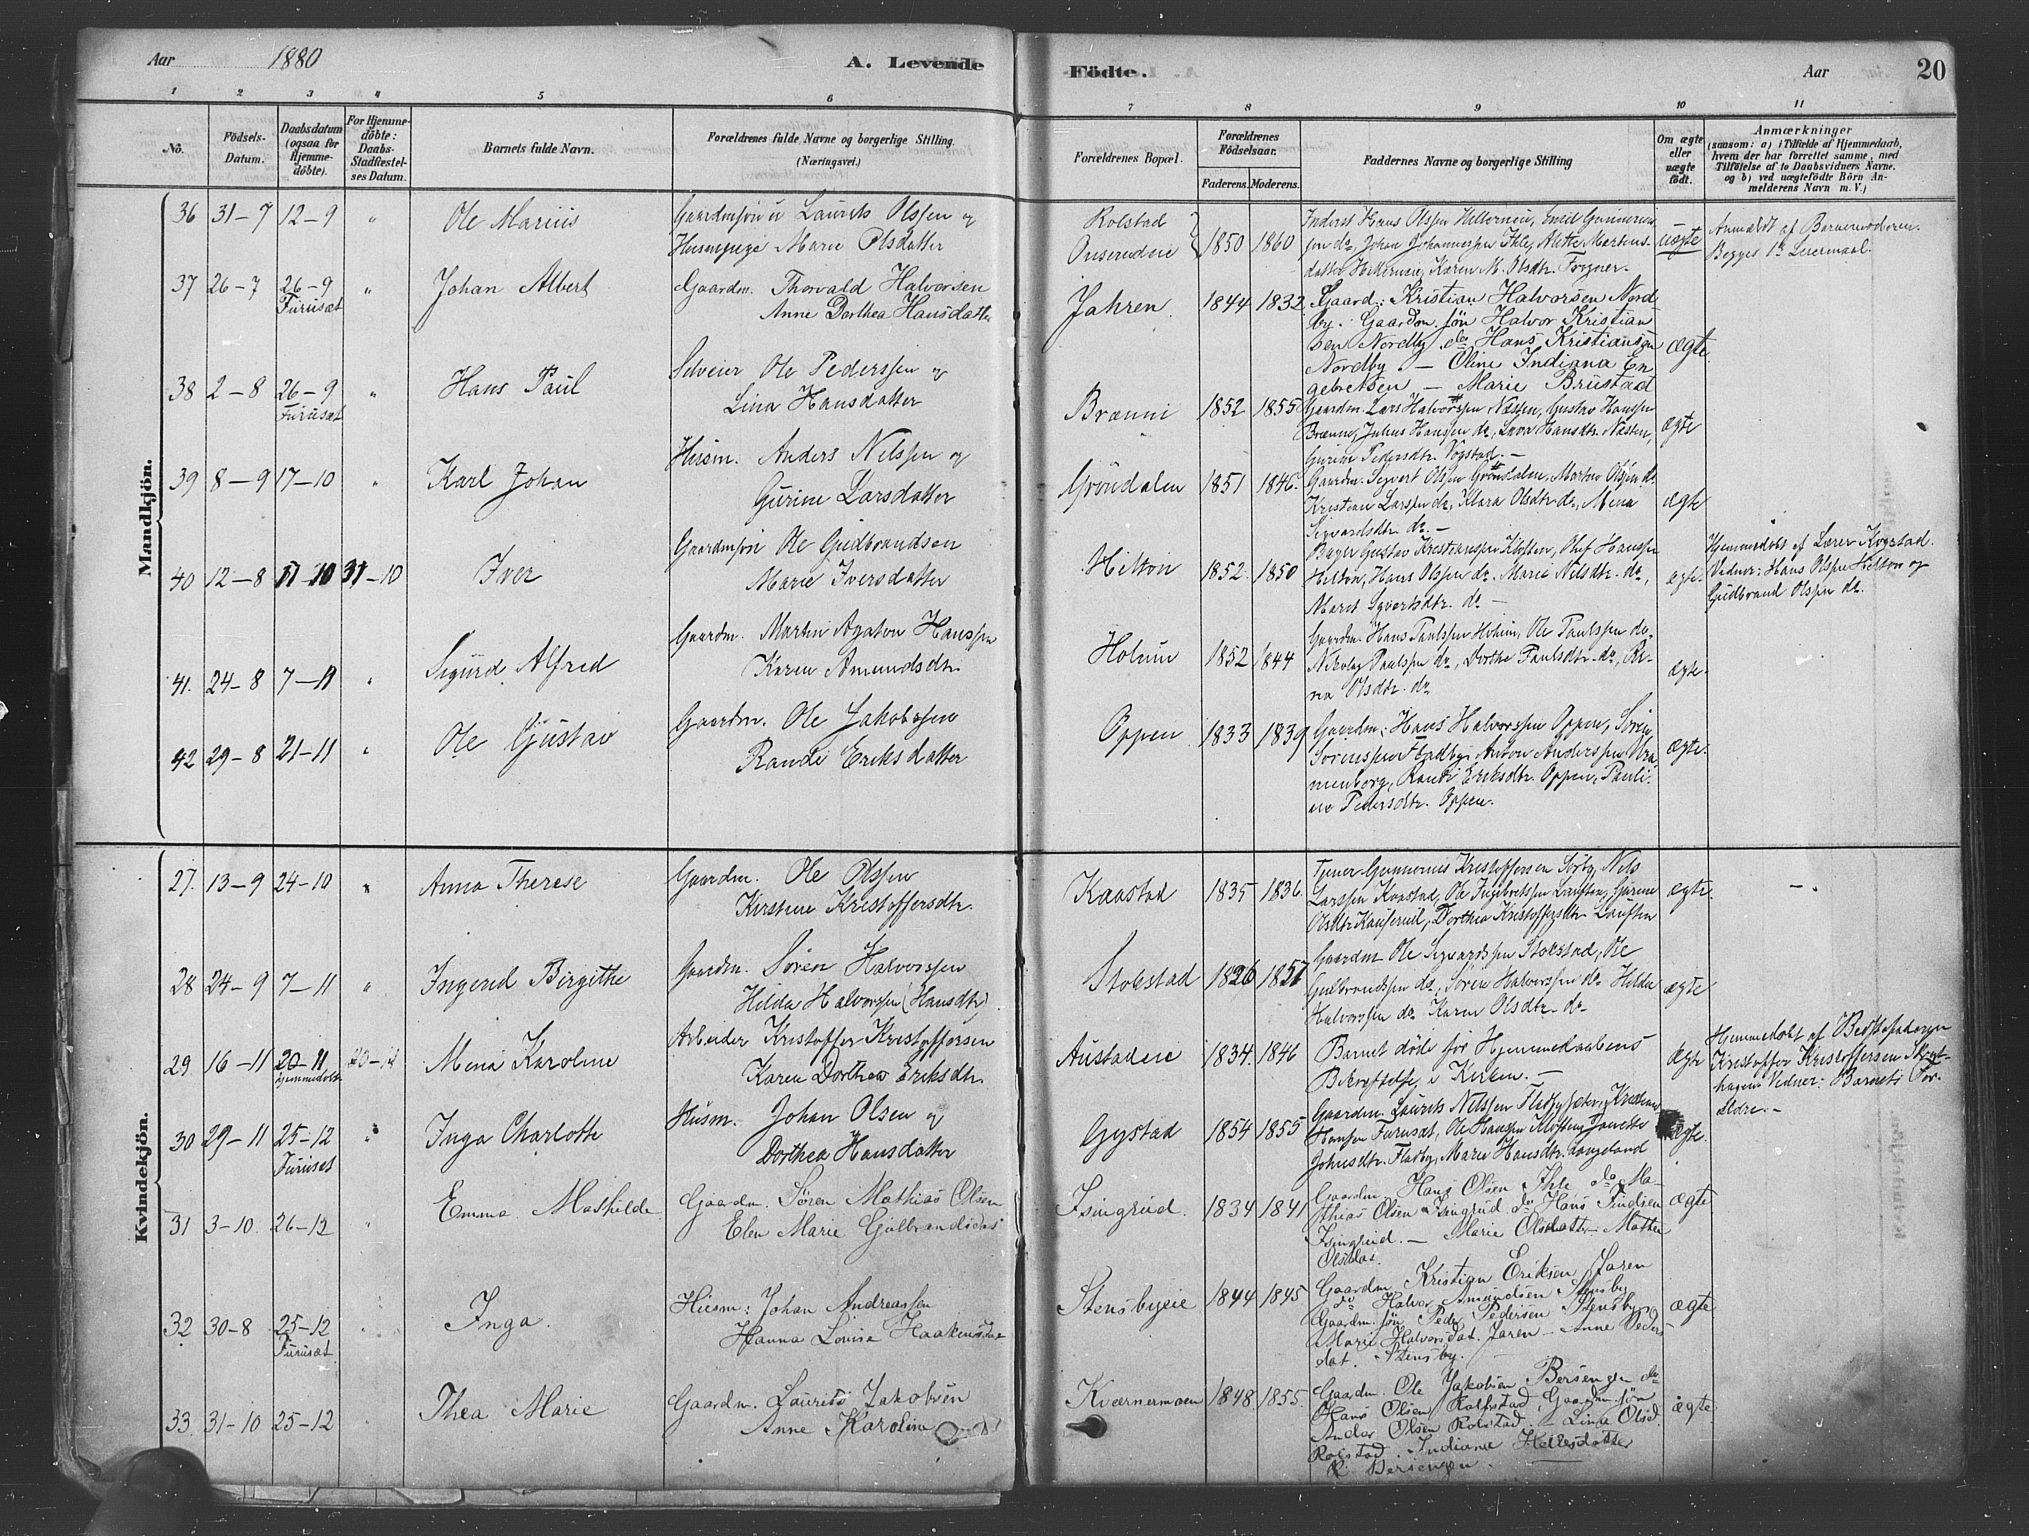 Aar 1880 A. Levende
Födte. Aar 20
1 2 3 4 5 6
7 8 9 10 11
No.
Födsels-
Datum.
Daabsdatum
(ogsaa for
Hjemme-
döbte).
For Hjemme-
döbte:
Daabs-
Stadfæstel-
ses Datum.
Barnets fulde Navn.
Forældrenes fulde Navne og borgerlige Stilling.
(Næringsvei.)
Forældrenes Bopæl.
Forældrenes
Födselsaar.
Faderens. Moderens.
Faddernes Navne og borgerlige Stilling
Om ægte
eller
uægte
födt.
Anmærkninger
(saasom: a) i Tilfælde af Hjemmedaab,
hvem der har forrettet samme, med
Tilföielse af to Daabsvidners Navne,
og b) ved uægtefödte Börn An-
melderens Navn m. V.)
Mandkjön.
36 31-7 12-9 " Ole Marius
Gaardmsön Laurits Olssen og
Marie Olsdatter
Rolstad
1850 1860
Inderst Hans Olssen
Johan Johannessen Ihle, Alette Martins-
datter Karen M. Olsdtr.
uægte
Anmeldt af Barnemoderen.
Begges 1ste Leiermaal.
37 26-7 26-9 " Johan Albert
Furusæt
Gaardm. Thorvald Halvorsen
Anne Dorthea Hansdatter
Jahren. 1844 1832
Gaard: Kristian Halvorsen Nord
by. Gaardm. sön Halvor Kristian
sen Nordby do Hans Kristiansen
Nordby — Oline Indiana En
gebretsen — Marie Brustad
ægte
38 2-8 26-9 " Hans Paul
Furusæt
Selveier Ole Pederssen og
Lina Hansdatter
Brænni 1852 1855
Gaardm. Lars Halvorssen Næssen, Gustav Hanssen
Brænne, Julius Hanssen do, Lova Hansdtr. Næsten,
Gurine Pedersdtr. Vogstad. —
ægte
39 8-9 17-10 " Karl Johan
Husm. Anders Nilssen og
Gurine Larsdatter
Gröndalen 1851 1846.
Gaardm. Syvert Olssen Gröndalen, Martin Olssen do.
Kristian Larssen do, Klara Olsdtr. do, Mina
Sigvardsdtr. do —
ægte
40 12-8 17-10 31-10 Iver
Gaardmsön Ole Gudbrandsen
Marie Iversdatter
Hilton 1852. 1850
Gustav Kristianssen Kloften, Olef Hanssen
Hilton, Hans Olssen do. Marie Nilsdtr. do,
Maret Syvertsdtr. do —
ægte.
Hjemmedöbt af Lærer Kogstad.
Vidner: Hans Olssen Hilton og
Gudbrand Olssen do.
41. 24-8 7-11 " Sigurd Alfred
Gaardm. Martin Agaton Hanssen
Karen Amundsdtr.
Holum 1852 1844
Gaardm. Hans Paulssen Holum, Ole Paulssen do.
Nikolay Paulssen do, Dorthe Paulsdtr. do, Re-
na Olsdtr. do
ægte.
42 29-8 21-11 " Ole Gustav
Gaardm. Ole Jakobssen
Randi Eriksdatter
Oppen 1833 1839
Gaardm: Hans Halvorssen Oppen, Sören
Sörenssen Fladby, Anton Anderssen Kra-
nenborg, Randi Eriksdtr. Oppen, Pauli-
ne Pedersdtr. Oppen.
ægte.
Kvindekjön.
27. 13-9 24-10 " Anna Therese
Gaardm. Ole Olssen
Kirstine Kristoffersdtr.
Kaastad 1835 1836.
Tjener Gunnerius Kristoffersen Sörby, Nils
Larssen Kaastad, Ole Ingebretssen Laufsten, Gurine
Olsdtr. Dorthea Kristoffersdtr Laufsten
ægte. —
28 24-9 7-11 " Ingerid Birgithe
Gaardm. Sören Halvorssen
Hilda Halvorssen (Hansdtr.)
Stokstad 1826 1857
Gaardm. Ole Sigvardssen Stokstad, Ole
Gulbrandssen do, Sören Halvorssen do Hilda
Halvorssen do Karen Olsdtr. do
ægte
29 16-11 20-11 Mina Karoline
Hjemmedöbt
Arbeider Kristoffer Kristoffersen
Karen Dorthea Eriksdtr.
Austadeie 1834. 1846
Barnet döde för Hjemmedaabens
Bekræftelse i Kirken. —
ægte
Hjemmedöbt af Bedstefaderen
Kristoffer Kristoffersen
Vidner: Barnets For-
ældre. —
30 29-11 25-12 " Inga Charlotte
Furuset
Husm. Johan Olsen og
Dorthea Hansdatter
Gystad 1854 1855
Gaardm. Laurits Nilssen Kristian
Hansen Furusæt, Ole Hansen Kloften, Janette
Johnsdtr. Fladby, Marie Hansdtr. Langeland
ægte.
31 3-10. 26-12 " Emma Mathilde
Gaardm. Sören Mathias Olsen
Elen Marie Gulbrandsdat
Isingrud. 1834 1841
Gaardm. Hans Olsen Ihle do Ma-
thias Olsen Isingrud do Hans
Isingrud. — Marie Olsdatter — Mathea
Olsdat.
ægte
32 30-8 25-12 Inga.
Furusæt
Husm: Johan Andreassen
Hanna Lovise Haakensdat
Stensbyeie 1844 1845
Gaardm. Kristian Eriksen Jaren
do Halvor Amundsen Stensby
Gaardm. sön Peder Pedersen Stensby
Marie Halvorsdat. Jaren — Anne Peders
dat. Stensby.
ægte
33. 31-10 25-12 Thea Marie
Gaardm. Laurits Jakobsen
Anne Karoline
Kværnermoen 1848 1855.
Gaardm. Ole Jakobsen Bersengen do
Hans Olsen Rolstad, Gaardm. sön
Andor Olsen Rolstad. — Lina Olsd.
Rolstad. Indiana Hellesdatter
Bersengen.
ægte.